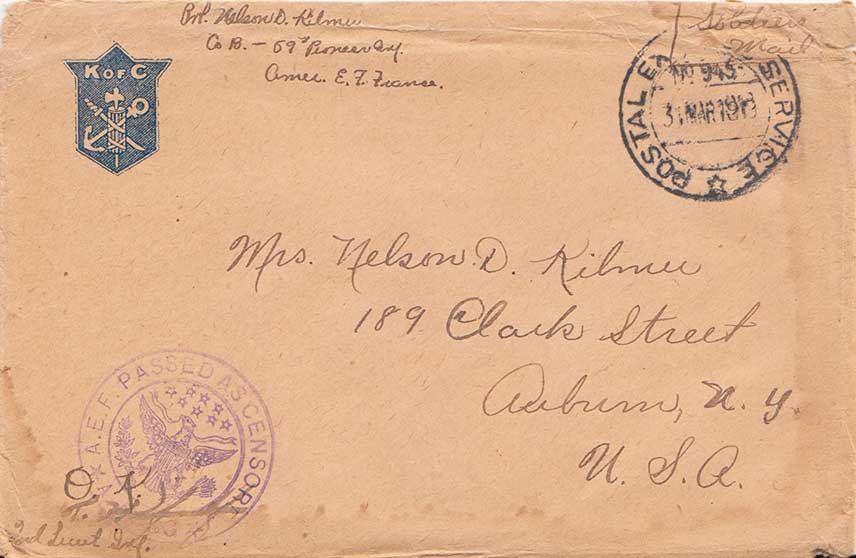 Pvt. Nelson D. Kilmer
Co B. - 59th Pioneer Inf.
Amer. E. F. France.
Soldiers
Mail
K OF C
POSTAL EX SERVICE
No 945
31 MAR 1919
Mrs. Nelson D. Kilmer
189 Clark Street
Auburn, N. Y.
U. S. A.
A.E.F. PASSED AS CENSORED
O. K.
2nd Lieut Inf.